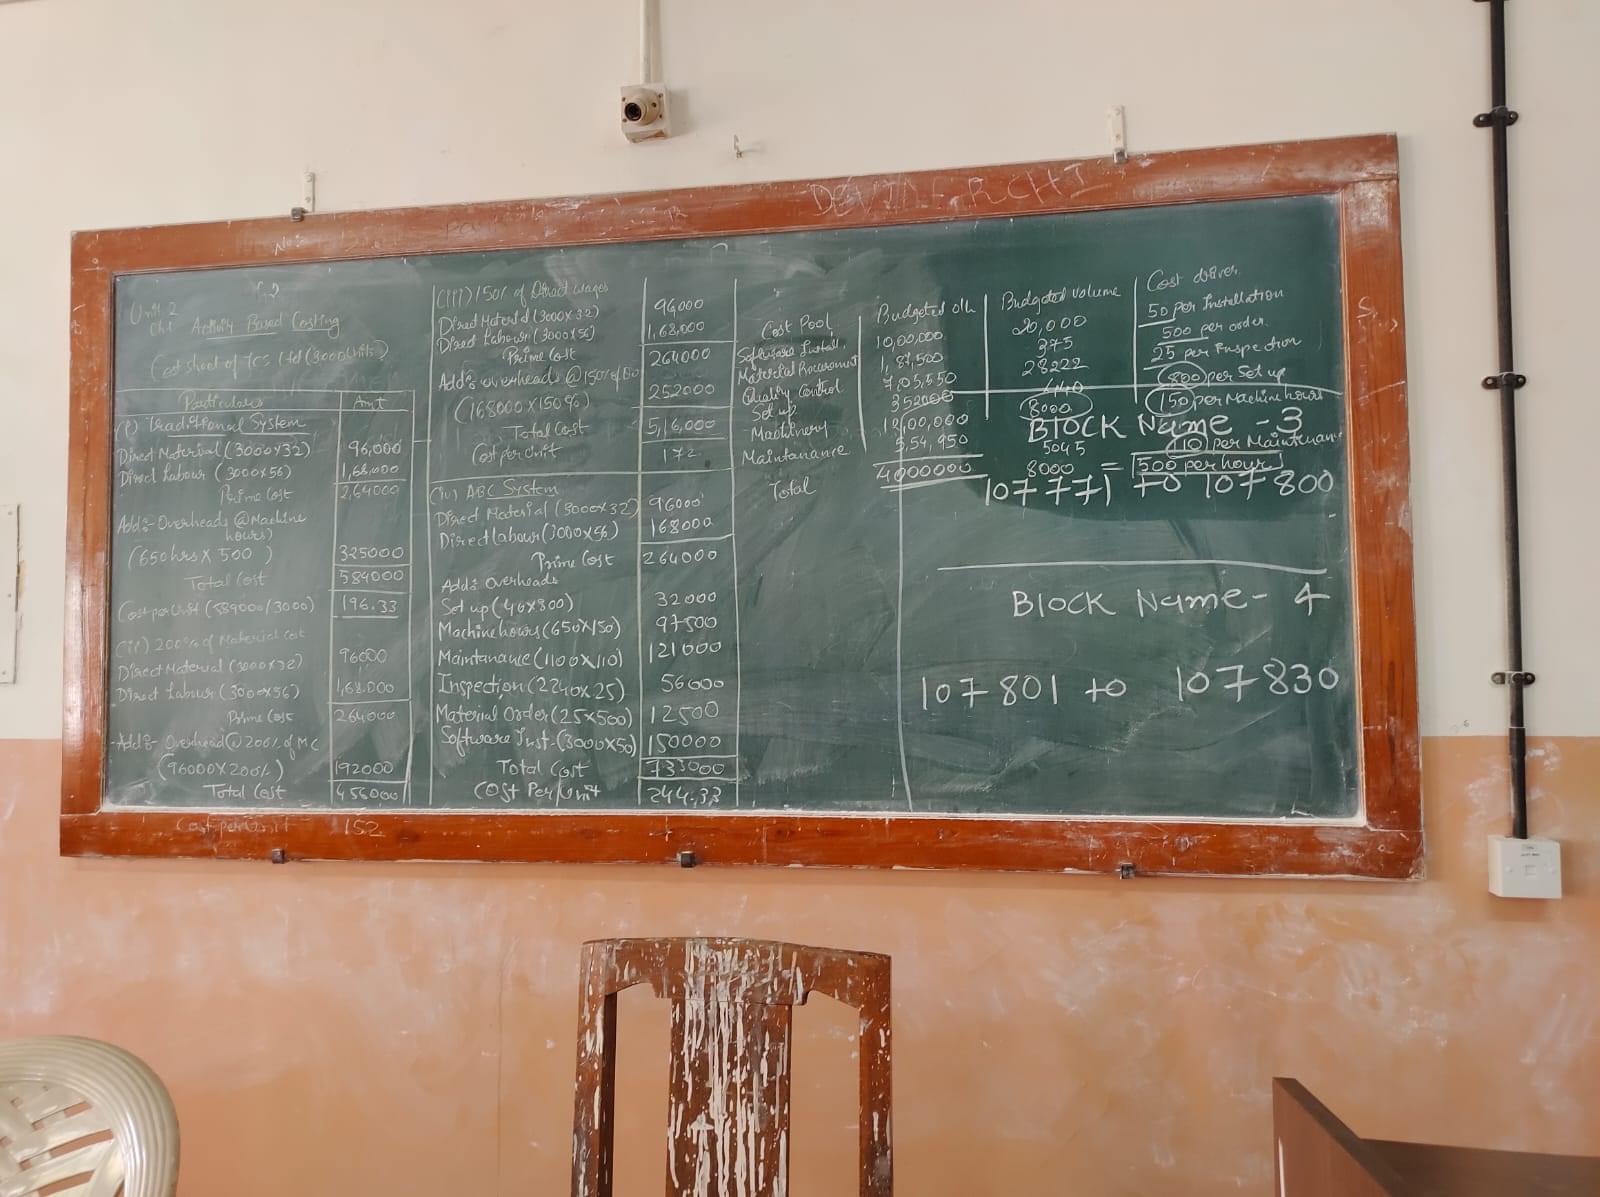 DEVINE RCHI
Unit 2
Ch 1 Activity Based Costing
Cost sheet of TCS Ltd (3000 Units)
Particulars Amt
(i) Traditional System
Direct Material (3000×32) 96,000
Direct Labour (3000×56) 1,68,000
Prime Cost 2,64000
Add:- Overheads @ Machine
hours)
(650 hrs × 500) 325000
Total Cost 584000
Cost per Unit (589000/3000) 196.33
(ii) 200% of Material Cost
Direct Material (3000×32) 96000
Direct Labour (3000×56) 1,68,000
Prime Cost 264000
Add:- Overhead @ 200% of MC
(96000×200%) 192000
Total Cost 456000
Cost per Unit 152
(iii) 150% of Direct wages
Direct Material (3000×32) 96000
Direct Labour (3000×56) 1,68,000
Prime Cost 264000
Add:- overheads @ 150% of
(168000×150%) 252000
Total Cost 5,16,000
Cost per Unit 172
(iv) ABC System
Direct Material (3000×32) 96000
Direct labour (3000×56) 168000
Prime Cost 264000
Add:- Overheads
Set up (40×800) 32000
Machine hours (650×150) 97500
Maintanance (1100×110) 121000
Inspection (2240×25) 56000
Material Order (25×500) 12500
Software Inst. (3000×50) 150000
Total Cost 733000
Cost Per Unit 244.33
Cost Pool Budgeted o/h Budgeted Volume Cost driver
Software Install. 10,00,000 20,000 50 per Installation
Material Procurement 1,87,500 375 500 per order
Quality Control 7,05,550 28222 25 per Inspection
Set up 352000 440 800 per Set up
Machinery 12,00,000 8000 150 per Machine hours
Maintanance 5,54,950 5045 110 per Maintenance
Total 4000000 8000 = 500 per hour
BLOCK Name - 3
107771 to 107800
BLOCK Name - 4
107801 to 107830